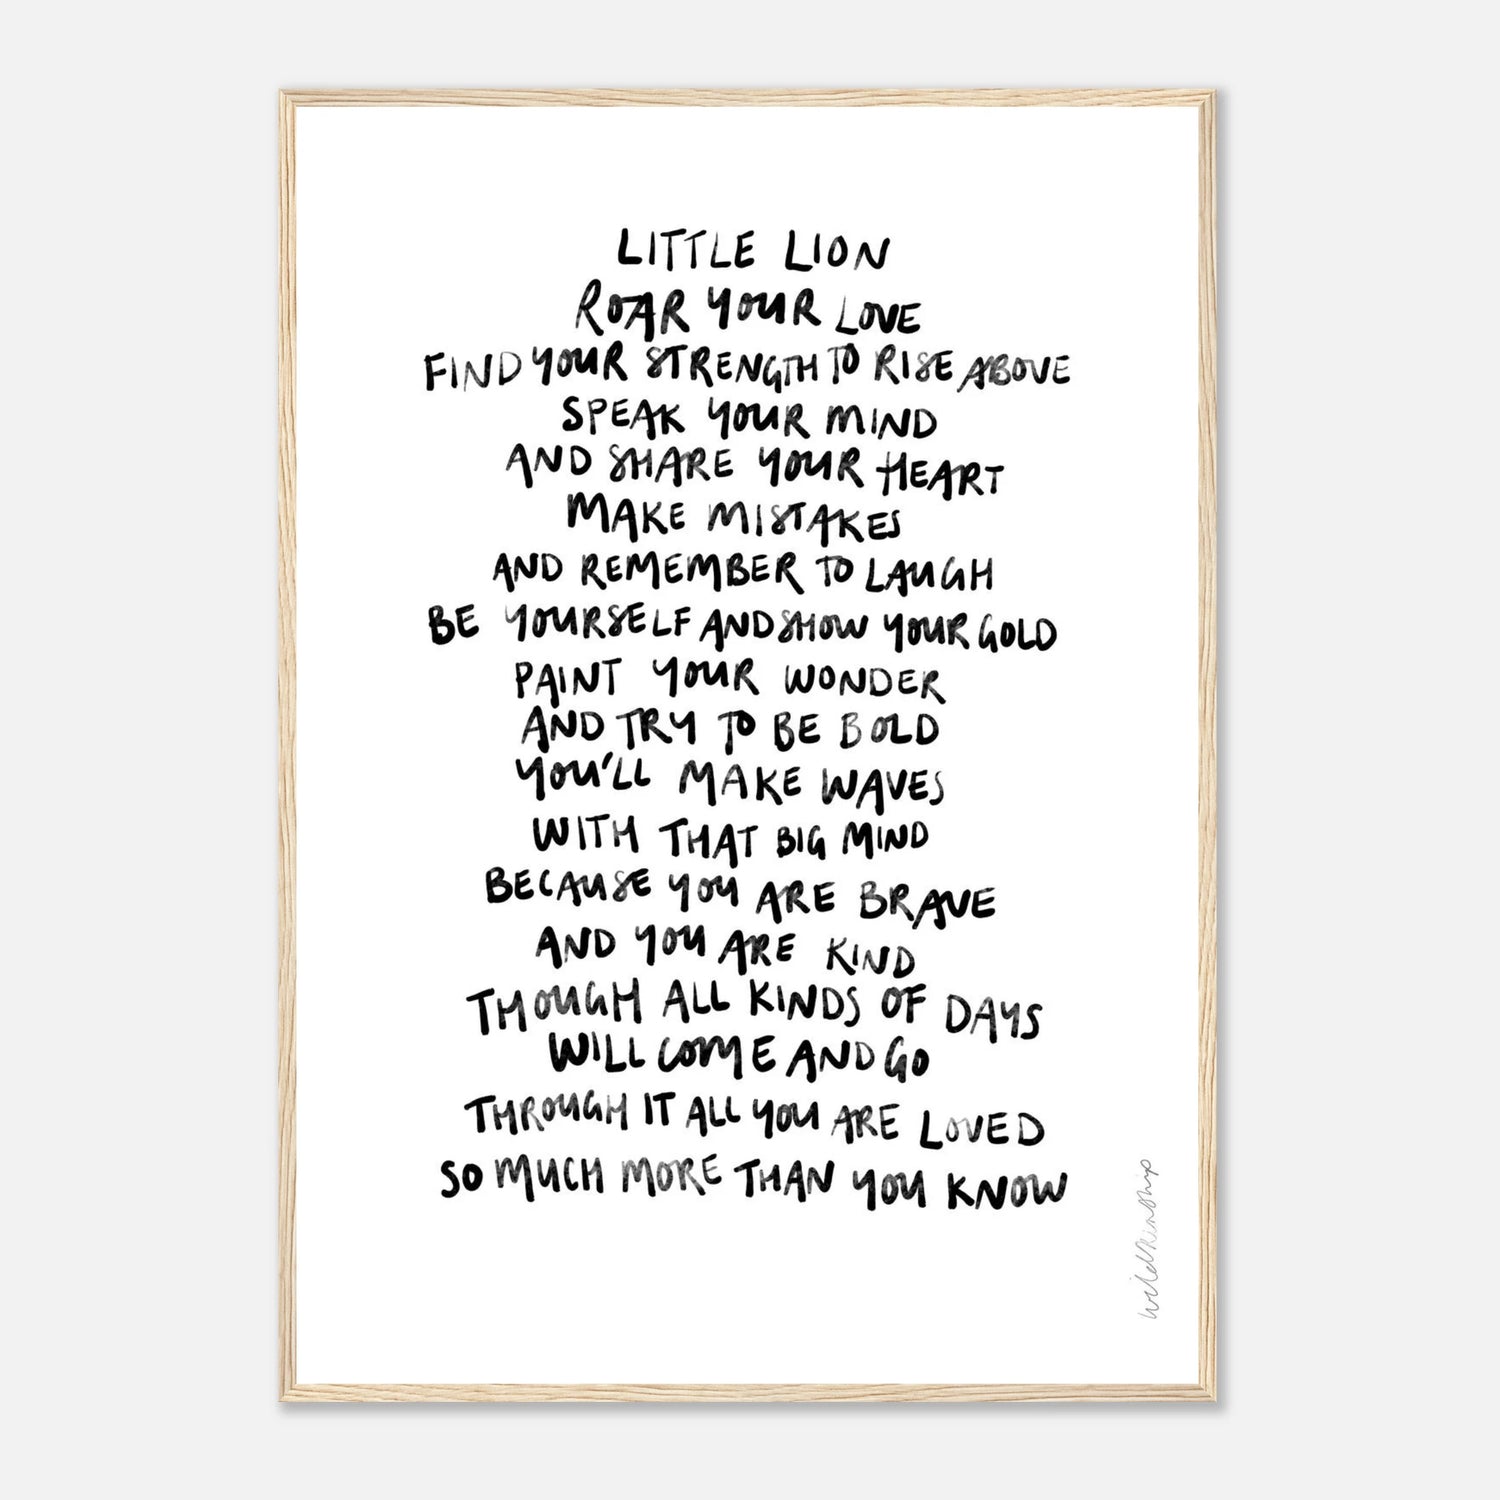 LITTLE LION
ROAR YOUR LOVE
FIND YOUR STRENGTH TO RISE ABOVE
SPEAK YOUR MIND
AND SHARE YOUR HEART
MAKE MISTAKES
AND REMEMBER TO LAUGH
BE YOURSELF AND SHOW YOUR GOLD
PAINT YOUR WONDER
AND TRY TO BE BOLD
YOU'LL MAKE WAVES
WITH THAT BIG MIND
BECAUSE YOU ARE BRAVE
AND YOU ARE KIND
THOUGH ALL KINDS OF DAYS
WILL COME AND GO
THROUGH IT ALL YOU ARE LOVED
SO MUCH MORE THAN YOU KNOW
wildkinship